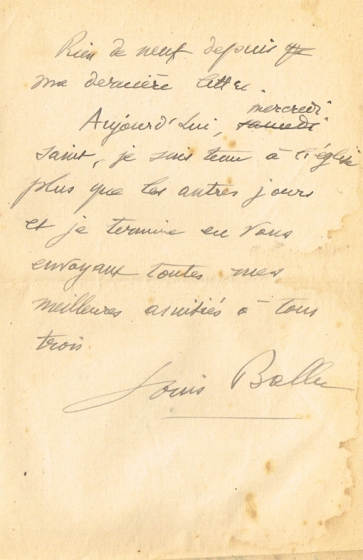 Rien de neuf depuis
ma dernière lettre.
Aujourd'hui, samedi mercredi
saint, je suis tenu à l'église
plus que les autres jours
et je termine en vous
envoyant toutes mes
meilleures amitiés à tous
trois.
Louis